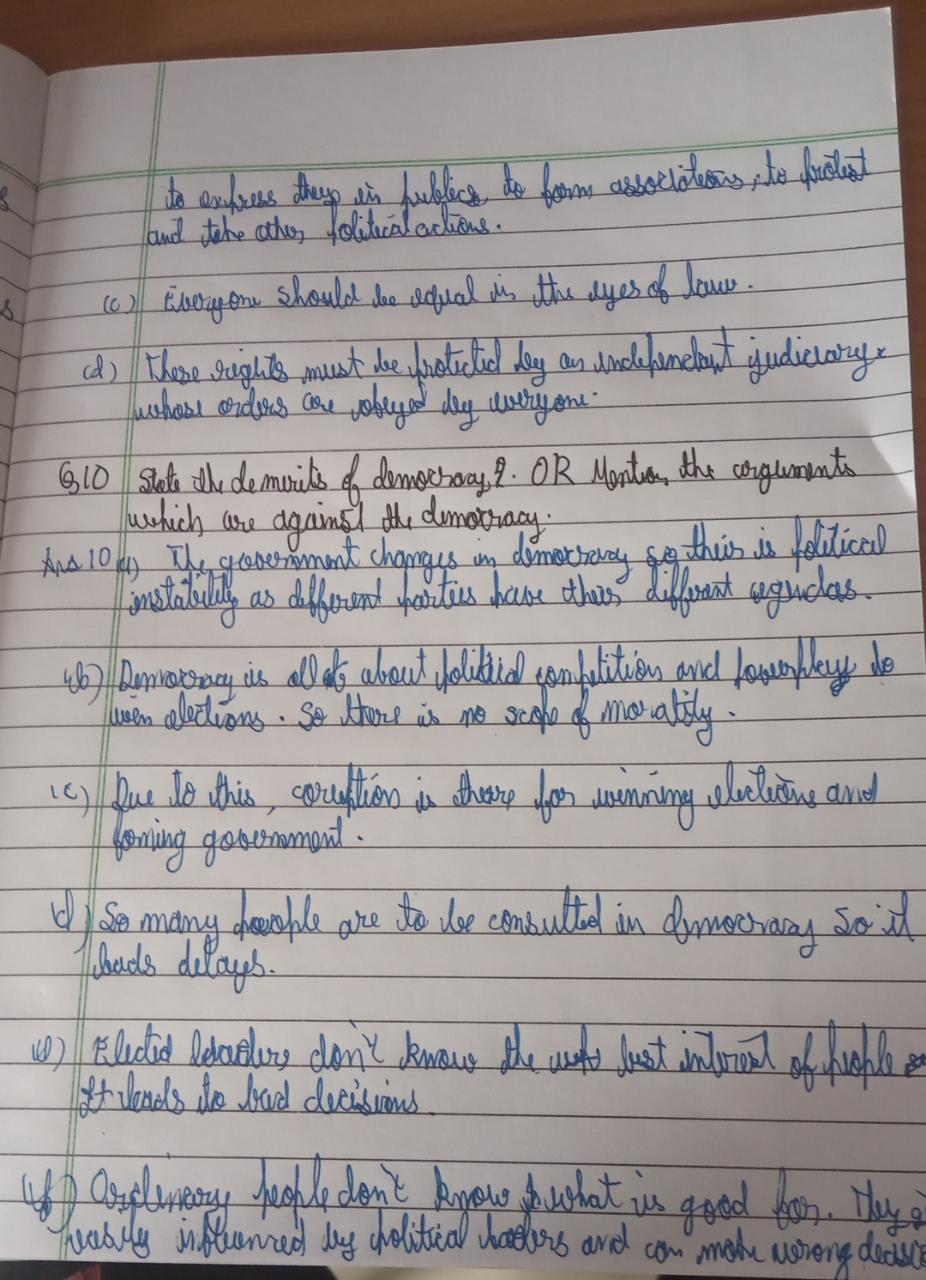 to express them in publics, to form associations, to protest
and take other political actions.
(c) Everyone should be equal in the eyes of law.
(d) These rights must be protected by an independent judiciary
whose orders are obeyed by everyone.
Q10 State the demerits of democracy?. OR Mention the arguments
which are against the democracy.
Ans 10 (a) The government changes in democracy so their is political
instability as different parties have their different agendas.
(b) Democracy is all about political competition and powerplay to
win elections. So there is no scope of morality.
(c) Due to this, coruption is there for winning elections and
foming government.
d) So many people are to be consulted in democracy So it
leads delays.
(e) Elected leaders don't know the best interest of people
It leads to bad decisions
(f) Ordinary people don't know what is good for. They
easily influenced by political leaders and can make wrong